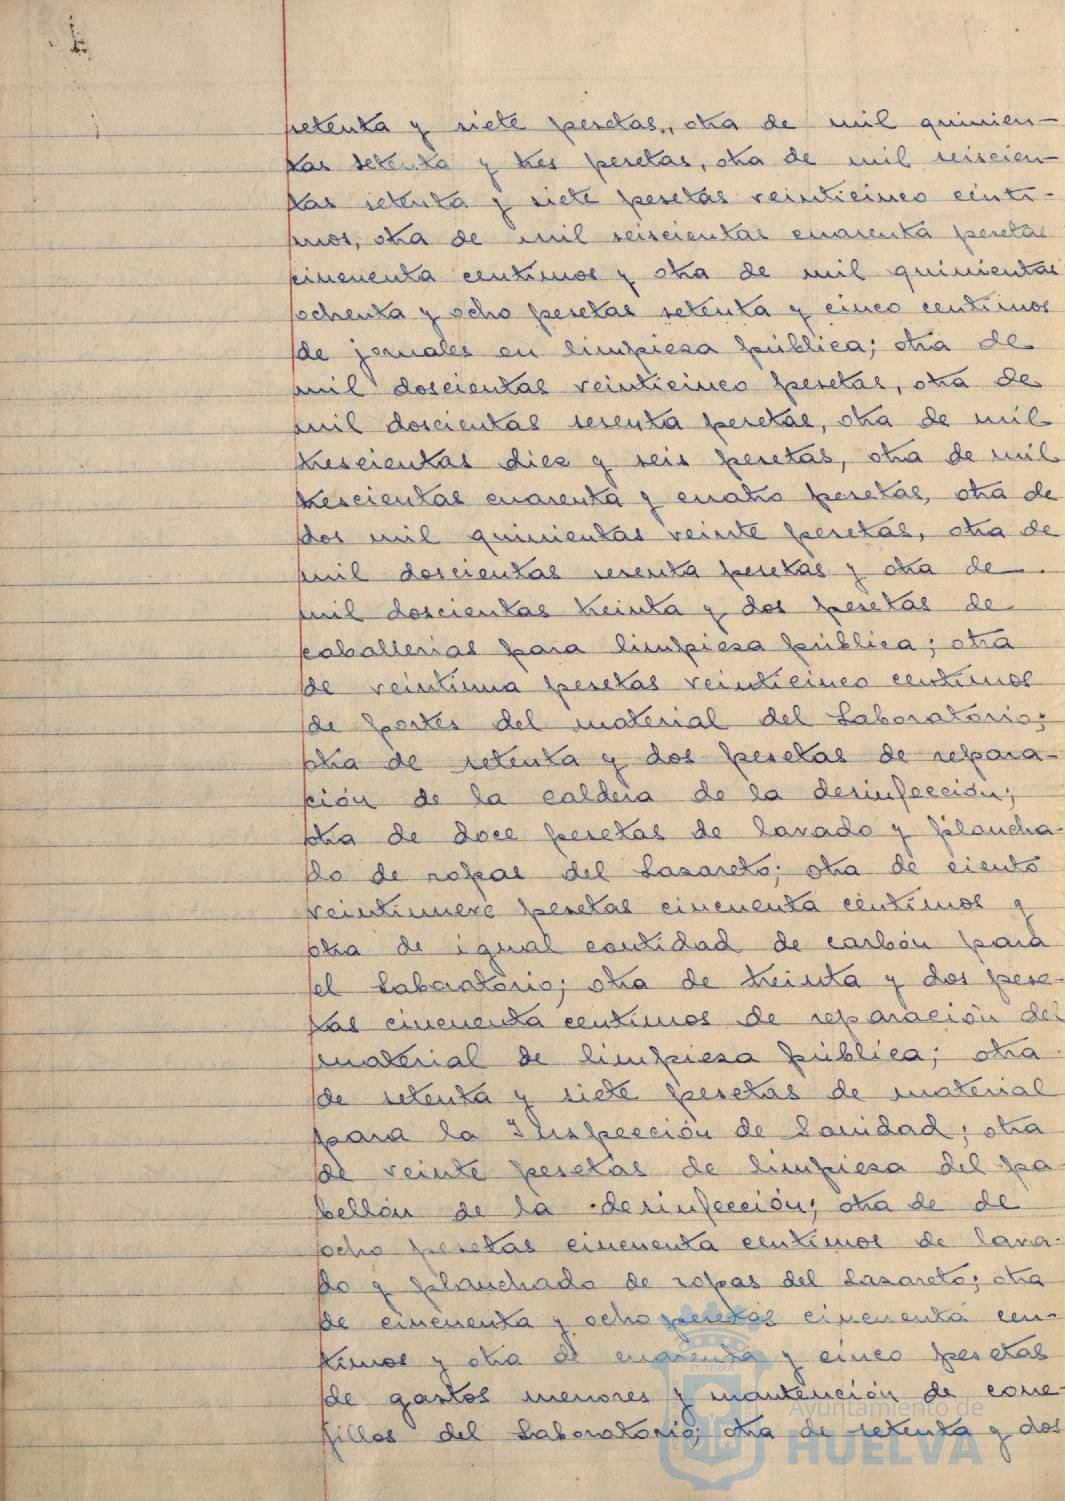 setenta y siete pesetas., otra de mil quinien-
tas setenta y tres pesetas, otra de mil seiscien-
tas setenta y siete pesetas veinticinco cénti-
mos, otra de mil seiscientas cuarenta pesetas
cincuenta centimos y otra de mil quinientas
ochenta y ocho pesetas setenta y cinco centimos
de jornales en limpieza pública; otra de
mil doscientas veinticinco pesetas, otra de
mil doscientas sesenta pesetas, otra de mil
trescientas diez y seis pesetas, otra de mil
trescientas cuarenta y cuatro pesetas, otra de
dos mil quinientas veinte pesetas, otra de
mil doscientas sesenta pesetas y otra de
mil doscientas treinta y dos pesetas de
caballerias para limpieza pública; otra
de veintiuna pesetas veinticinco centimos
de portes del material del Laboratorio;
otra de setenta y dos pesetas de repara-
ción de la caldera de la desinfección;
otra de doce pesetas de lavado y plancha-
do de ropas del Lazareto; otra de ciento
veintinueve pesetas cincuenta céntimos y
otra de igual cantidad de carbón para
el Laboratorio; otra de treinta y dos pese-
tas cincuenta centimos de reparación del
material de limpieza pública; otra
de setenta y siete pesetas de material
para la Inspección de Sanidad; otra
de veinte pesetas de limpieza del pa-
bellón de la desinfección; otra de de
ocho pesetas cincuenta centimos de lava-
do y planchado de ropas del Lazareto; otra
de cincuenta y ocho pesetas cincuenta cen-
timos y otra de cuarenta y cinco pesetas
de gastos menores y mantención de cone-
jillos del Laboratorio; otra de setenta y dos
Ayuntamiento de
HUELVA